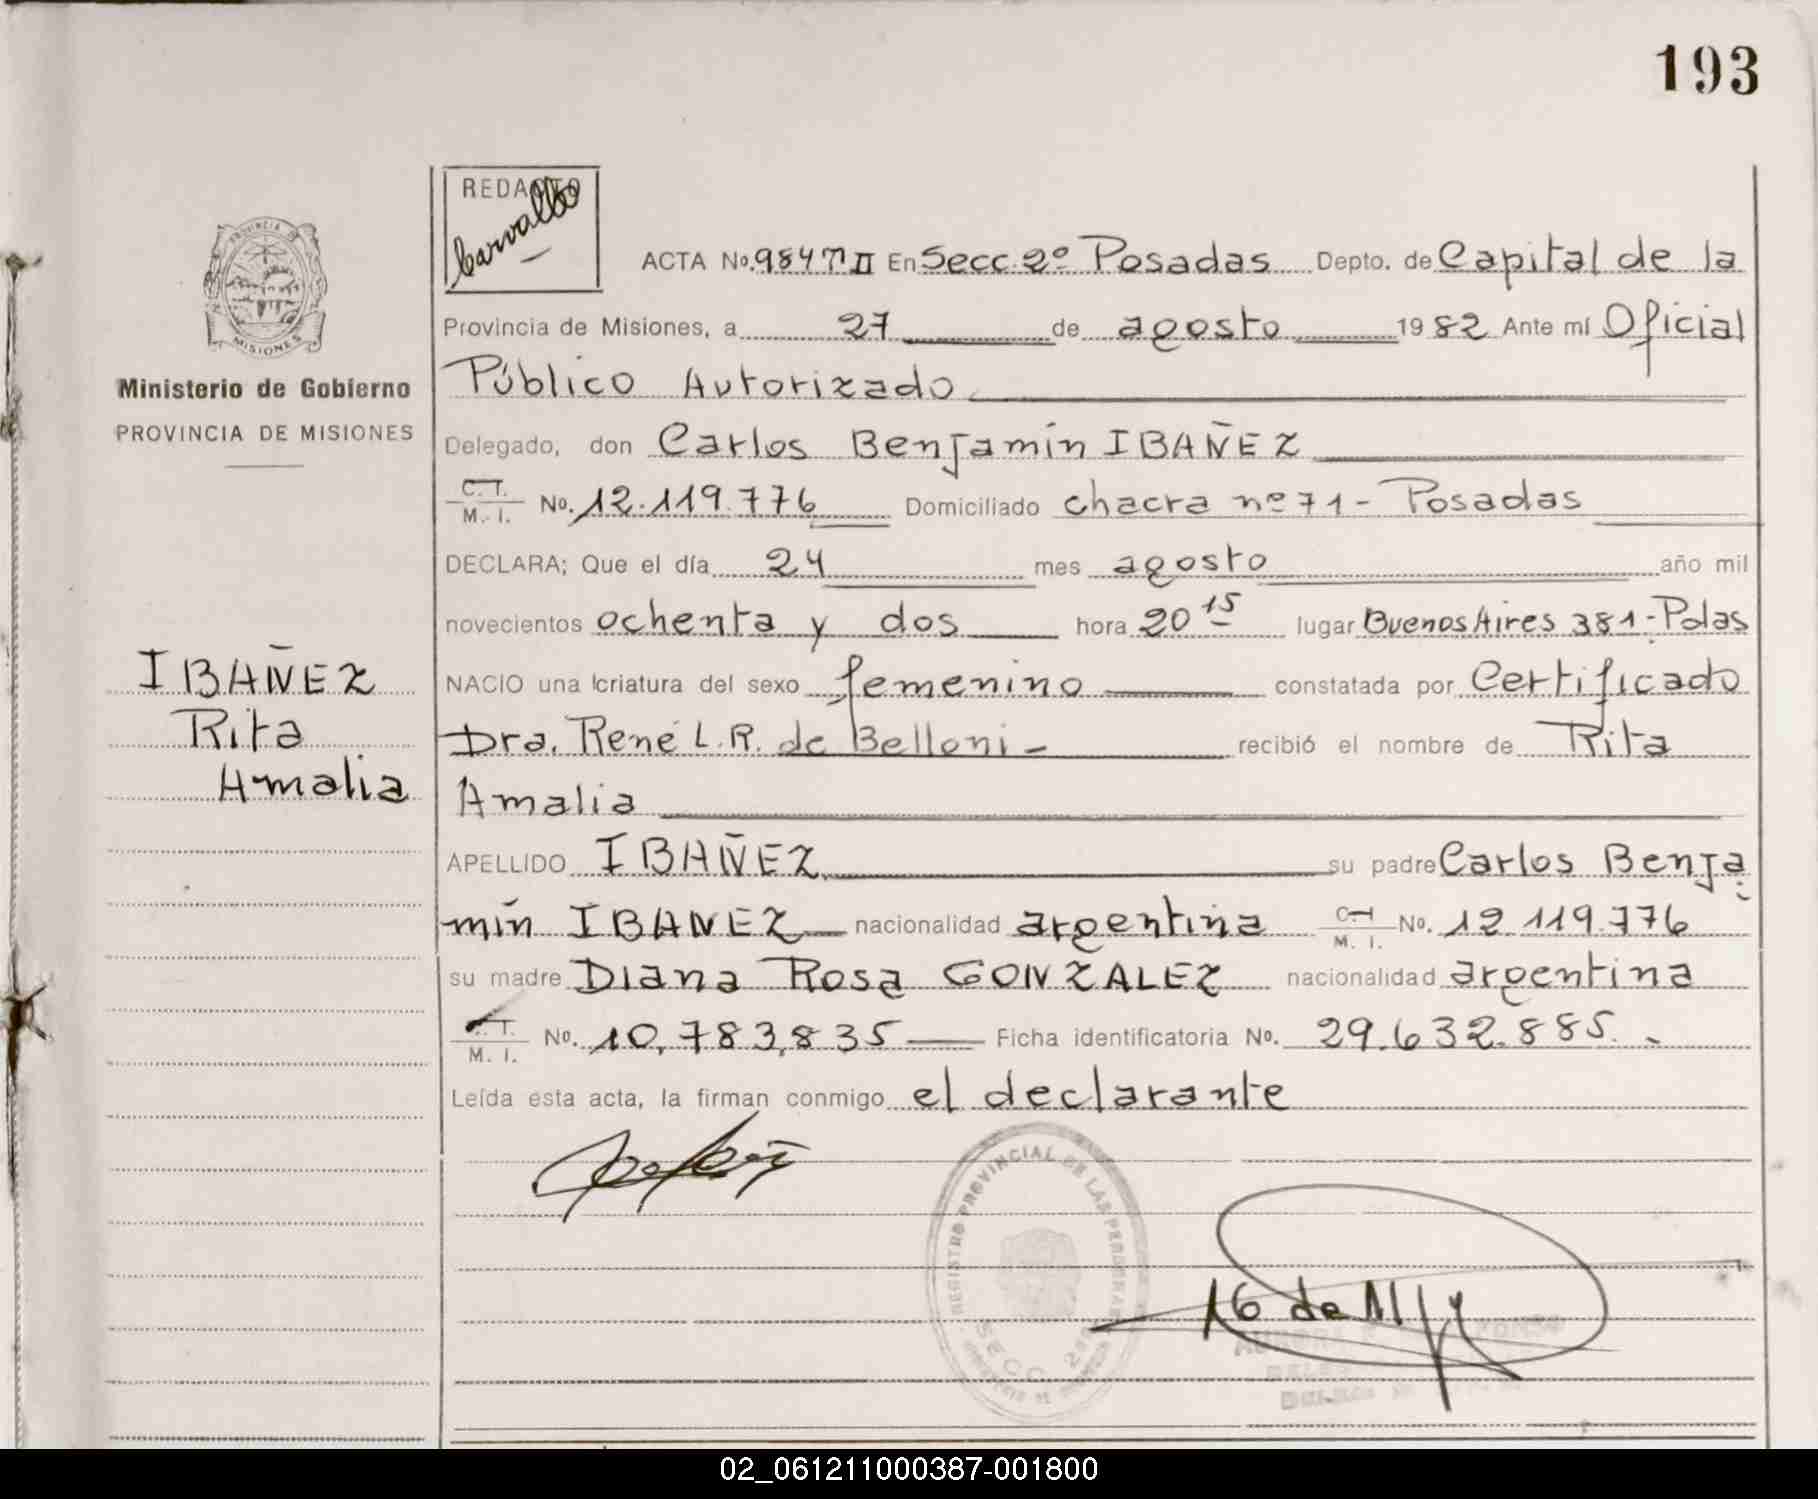 193
REDACTO
Carvallo
PROVINCIA DE
MISIONES
Ministerio de Gobierno
PROVINCIA DE MISIONES
ACTA No. 984 T II En Secc. 2º Posadas Depto. de Capital de la
Provincia de Misiones, a 27 de agosto 1982 Ante mí Oficial
Público Autorizado
Delegado, don Carlos Benjamín IBAÑEZ
C. I.
M. I. No. 12.119.776 Domiciliado chacra nº 71 - Posadas
DECLARA; Que el día 24 mes agosto año mil
novecientos ochenta y dos hora 20 15 lugar Buenos Aires 381 - Pdas
IBAÑEZ
Rita
Amalia
NACIO una criatura del sexo femenino constatada por Certificado
Dra. René L. R. de Belloni - recibió el nombre de Rita
Amalia
APELLIDO IBAÑEZ su padre Carlos Benja
mín IBANEZ nacionalidad argentina C. I. M. I. No. 12.119.776
su madre Diana Rosa GONZALEZ nacionalidad argentina
M. I. No. 10,783,835 Ficha identificatoria No. 29.632.885.
Leída esta acta, la firman conmigo el declarante
REGISTRO PROVINCIAL DE LAS PERSONAS
SECC. 2
02_061211000387-001800